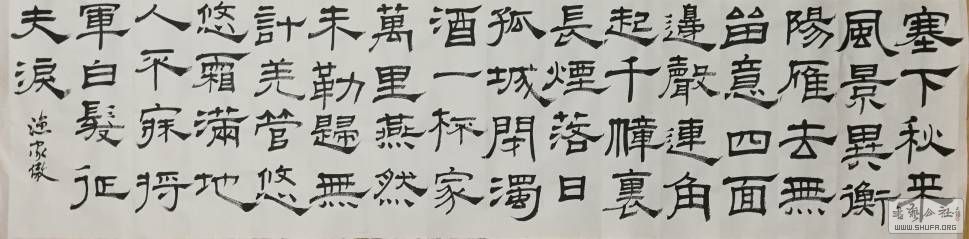 塞下秋來
風景異衡
陽雁去無
留意四面
邊聲連角
起千幛裏
長煙落日
孤城閉濁
酒一杯家
萬里燕然
未勒歸無
計羌管悠
悠霜滿地
人不寐將
軍白髮征
夫淚
漁家傲
WWW.SHUFA.ORG